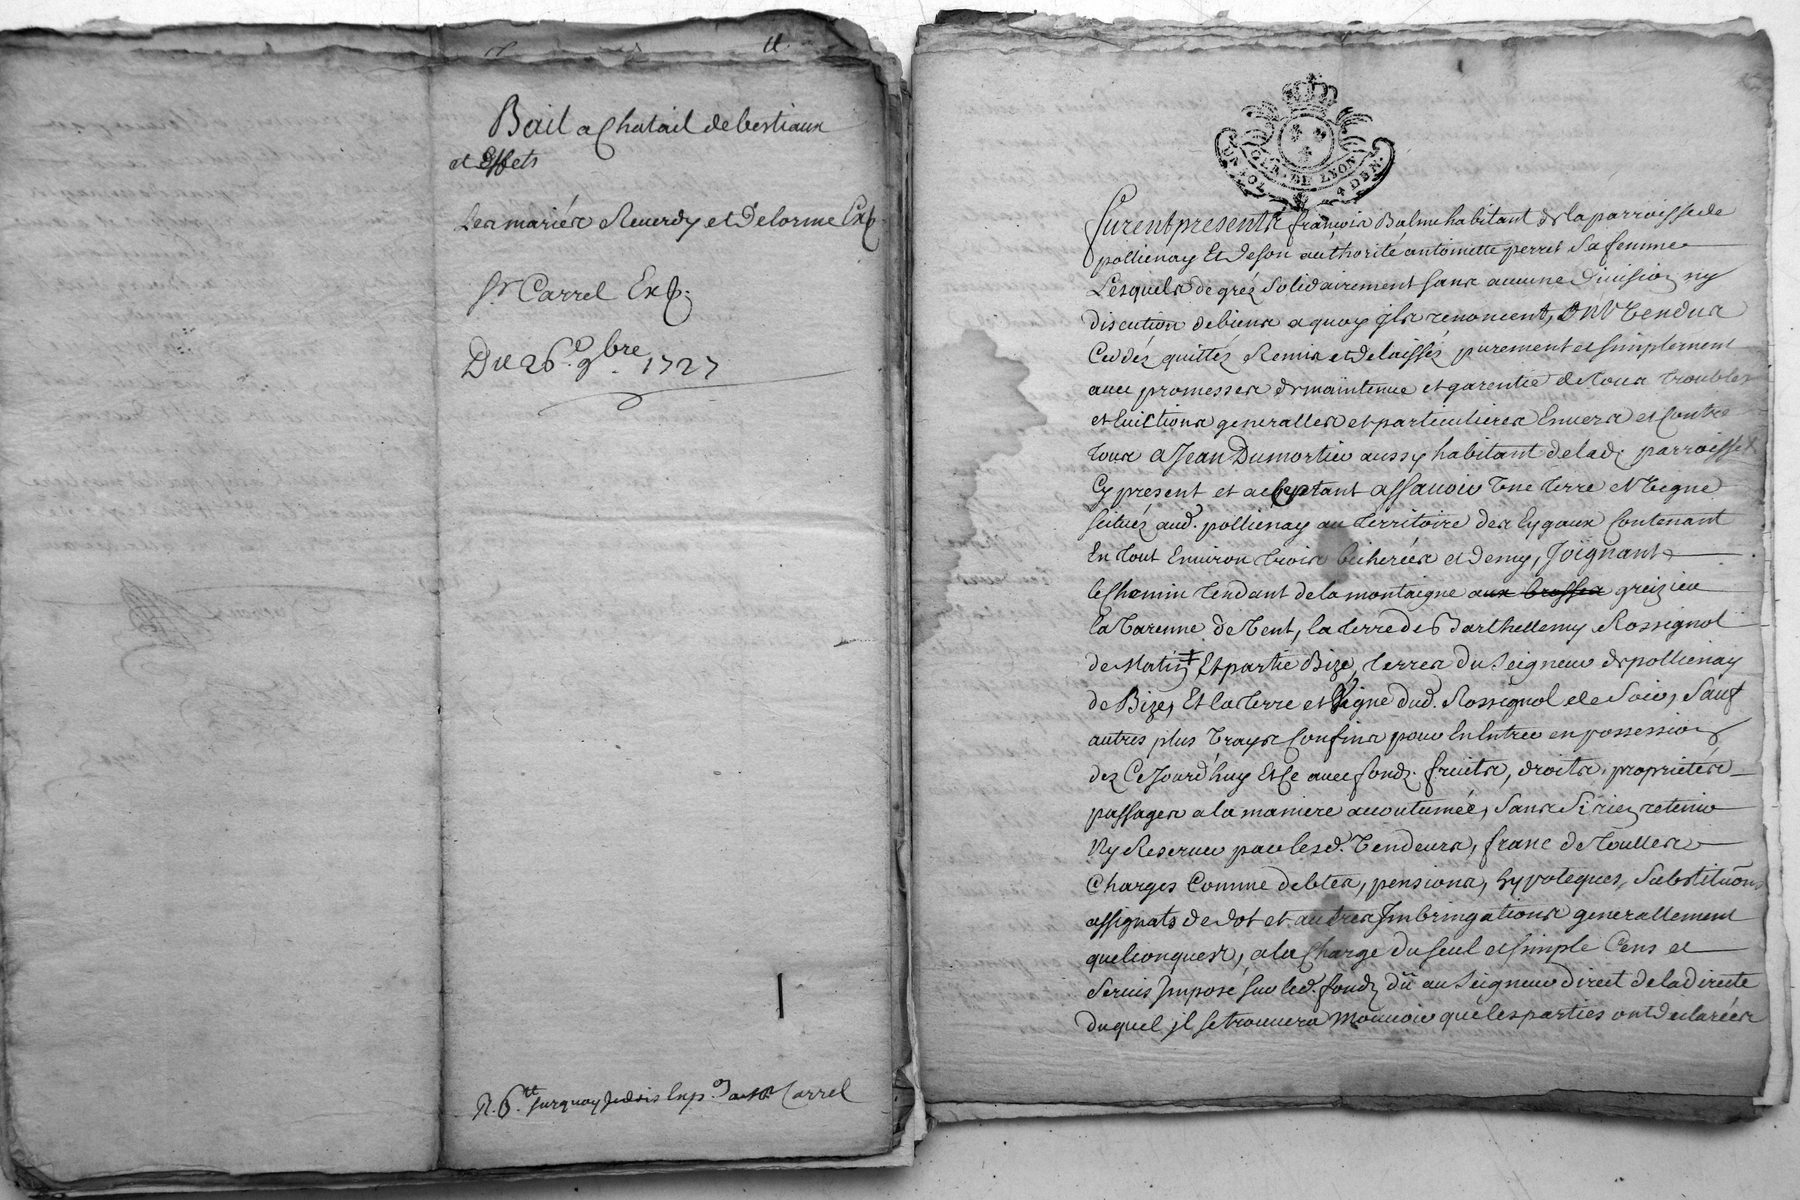 Bail a Chatail de bestiaux
et Effets
Les mariés Reuerdy et Delorme Exp.
Sr. Carrel Exp.
Du 26e. 9bre. 1727
R. 6tt surquoy Je dois Carrel
GEN. DE LYON
UN SOL 4 DEN.
furent presents françois Balme habitant de la parroisse de
pollienay Et de son authorité antoinette perret sa femme
Lesquels de gréz solidairement sans aucune Diuision ny
discution de biens a quoy jls renoncent, ont Vendus
Ceddés quittés Remis et delaissés purement et simplement
auec promesses de maintenue et garentie de tous troubles
et Euictions generalles et particulieres Enuers et Contre
tous a Jean Dumortier aussy habitant de lad. parroisse
Cy present et acceptant assauoir Vne terre et Vegne
scituéz aud. pollienay au territoire des Eygaux Contenant
En tout Enuiron trois bicherées et demy, Joignant
le Chemin tendant de la montaigne aux brosses greizieu
la Varenne de Vent, la terre de Barthellemy Rossignol
de Matin Et partie Bize, terres du Seigneur de pollienay
de Bize, Et la terre et Vigne dud. Rossignol de Soir, Sauf
autres plus Vrays Confins pour En Entrer en possession
dez Ce Jourd'huy Et Ce auec fondz. fruits, droits, proprietés
passages a la maniere acoutumée, Sans Si rien retenir
Ny Reseruer par lesd. Vendeurs, franc de toutes
Charges Comme debtes, pensions, hypoteques, Substitutions
assignats de dot et autres Jmbringations generallement
quelconques, a la Charge du seul et simple Cens et
Seruis Jmposé sur led. fondz dü au Seigneur direct de la directe
duquel jl se trouuera Mouuoir que les parties ont declarées